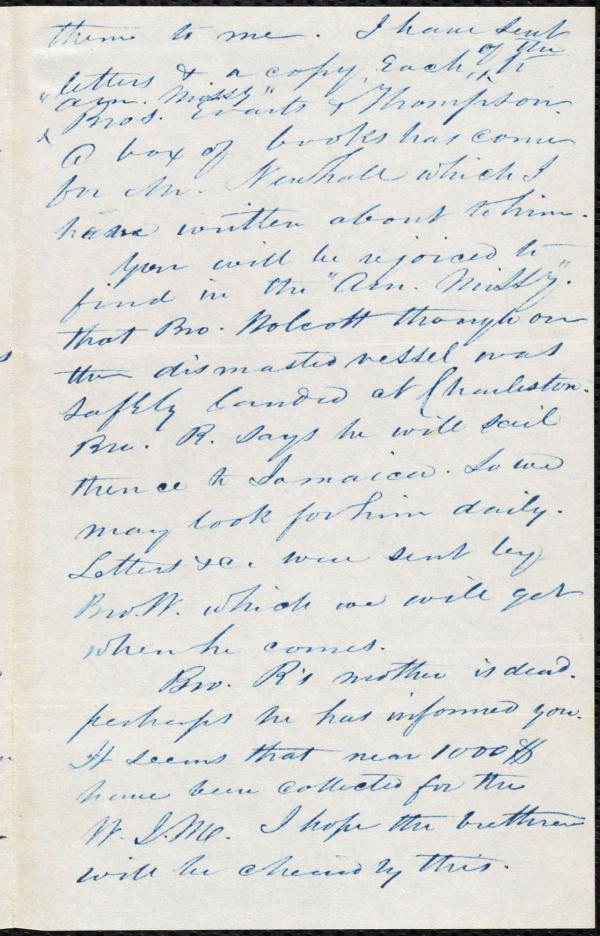 them to me. I have sent
letters & a copy, each, of the
"Am. Missy" to
Bros. Evarts & Thompson.
A box of books has come
for Mr. Newhall which I
have written about to him.
You will be rejoiced to
find in the "Am. Missy".
that Bro. Wolcott though on
the dismasted vessel was
safely landed at Charleston.
Bro. R. says he will sail
thence to Jamaica. So we
may look for him daily.
Letters &c. were sent by
Bro. W. which we will get
when he comes.
Bro. R's mother is dead.
perhaps he has informed you.
It seems that near 1000$
have been collected for the
W. I. M. I hope the brethren
will be cheered by this.